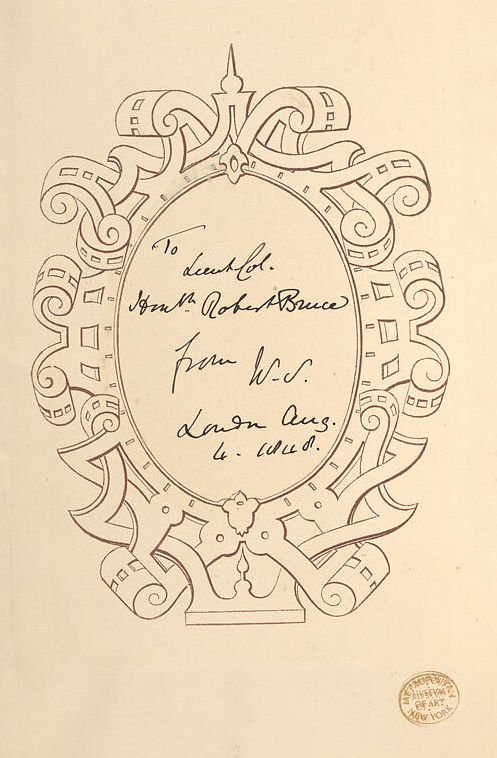 To
Lieut Col.
Honble. Robert Bruce
from W.S.
London Aug.
4. 1848.
METROPOLITAN
MUSEUM
OF ART
NEW YORK